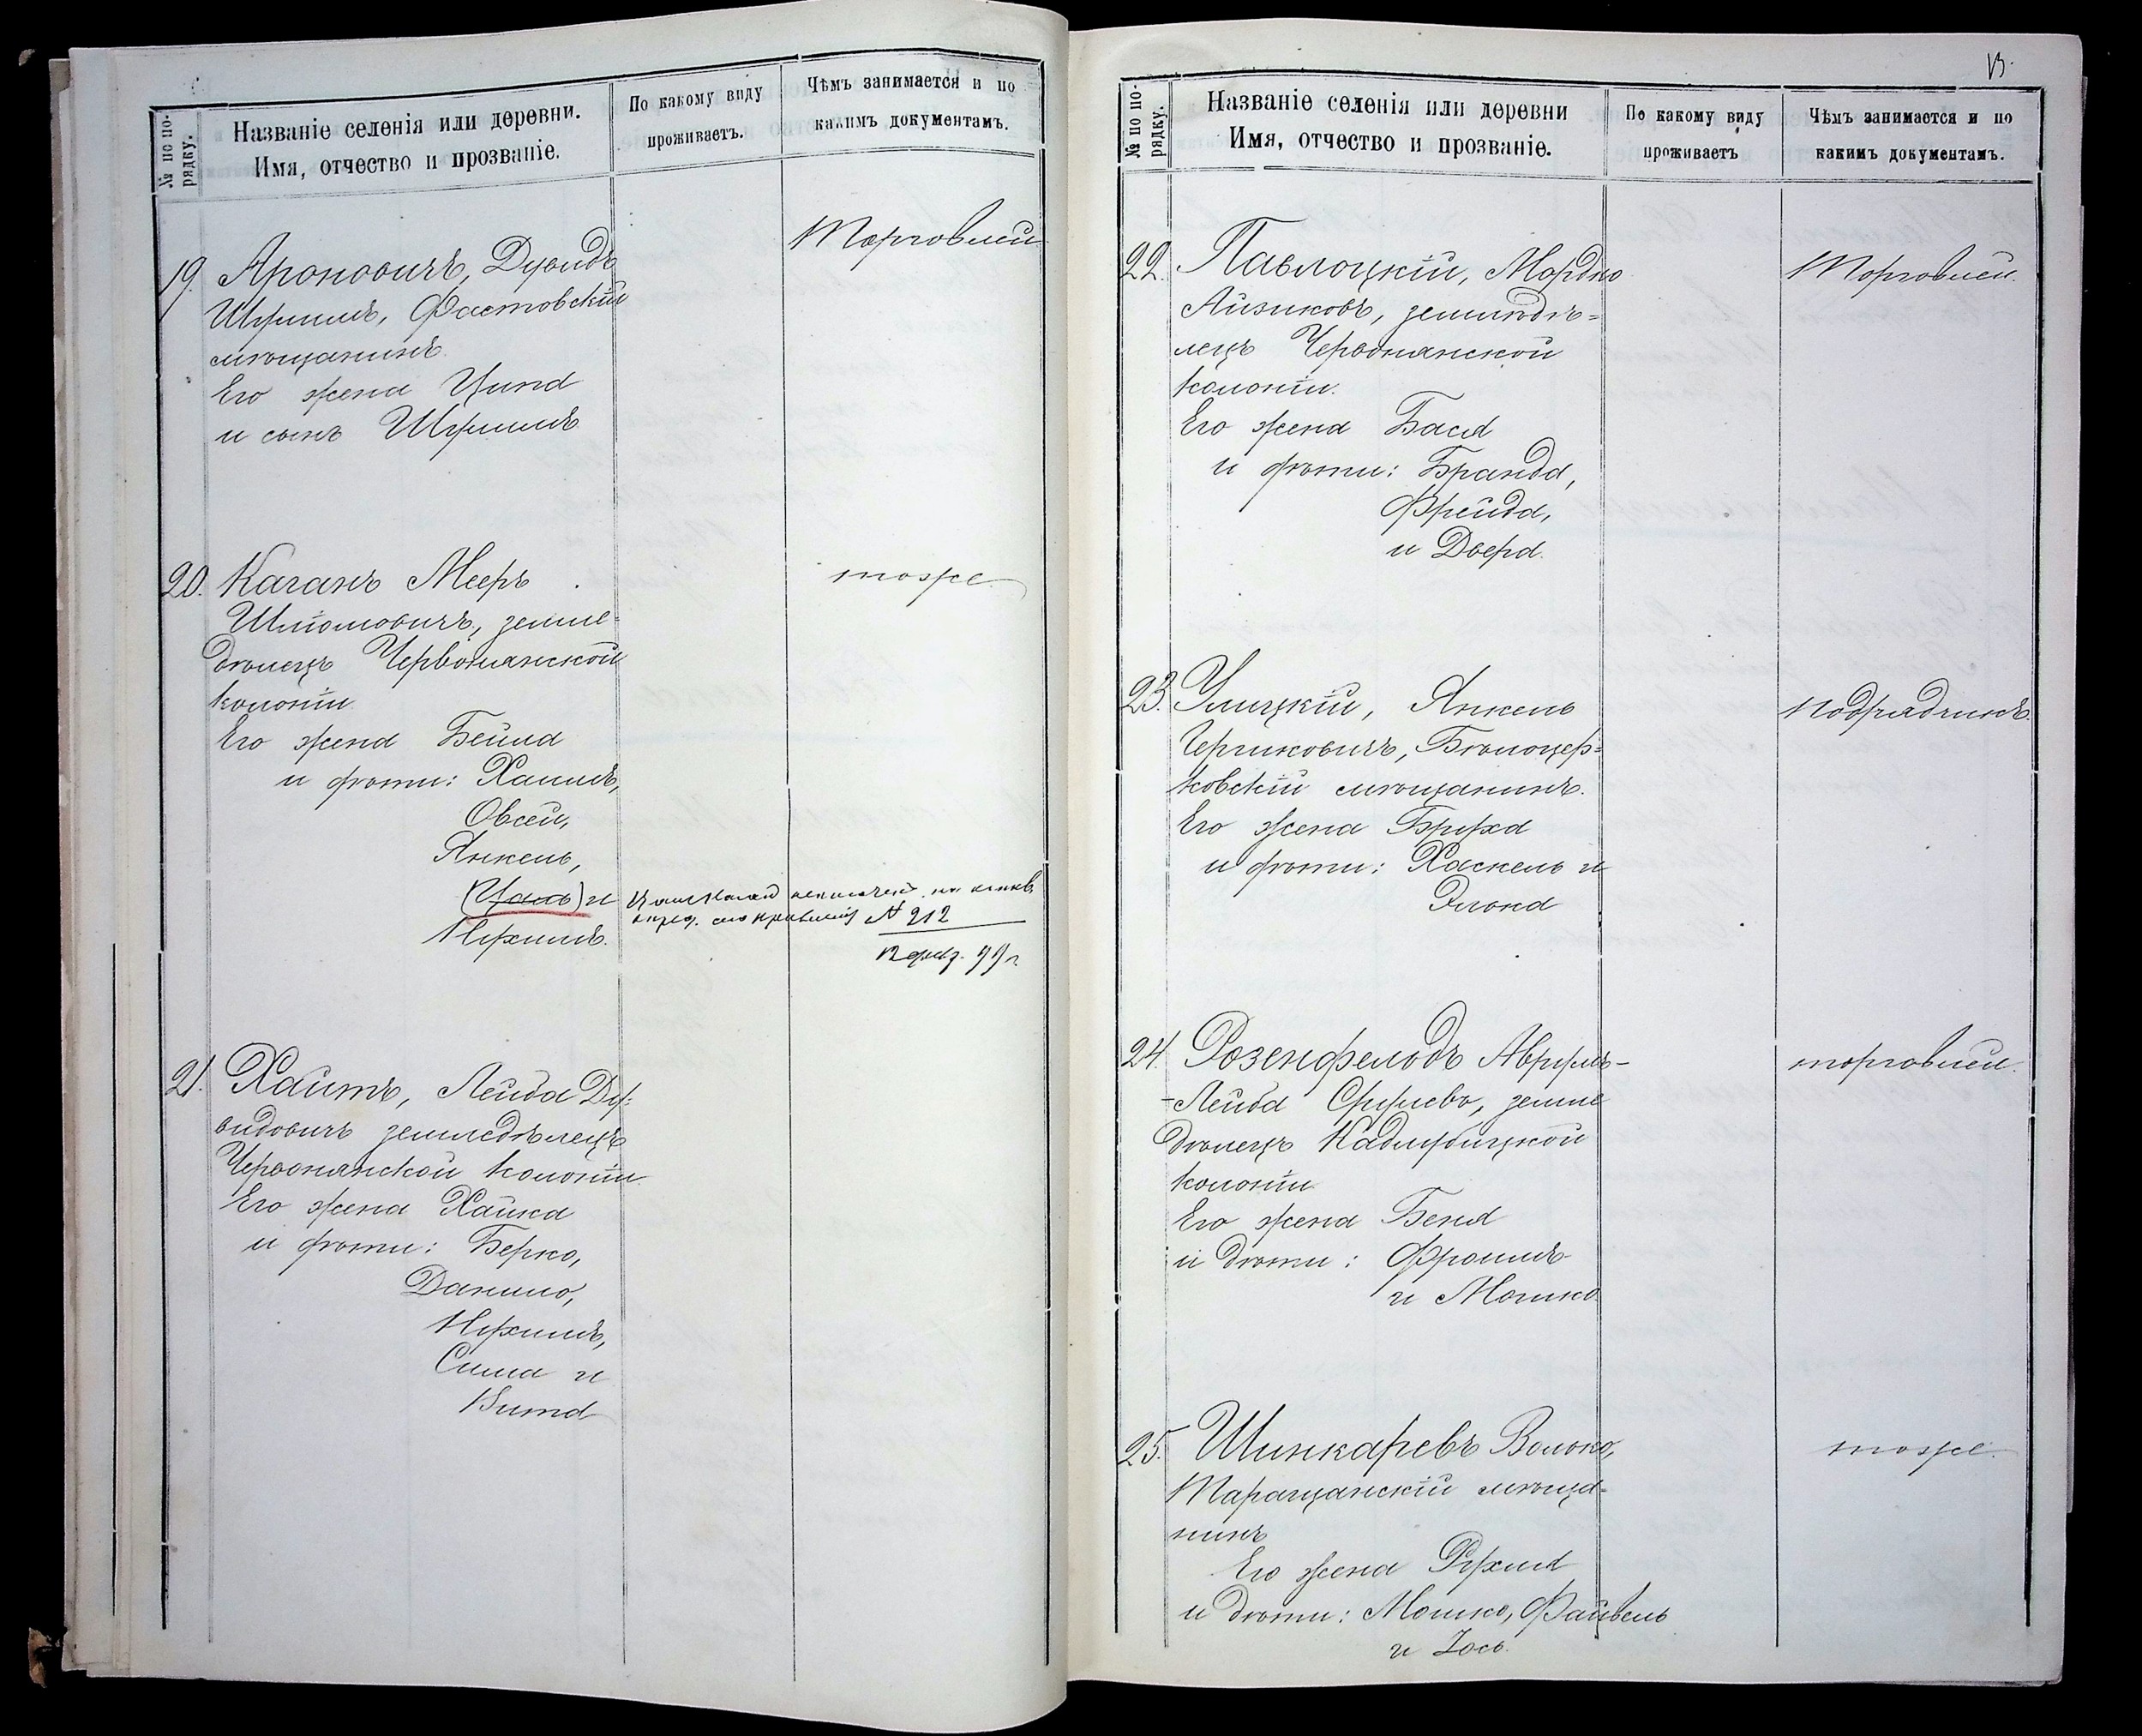 № по по-
рядку.
Названіе селенія или деревни.
Имя, отчество и прозваніе.
По какому виду
проживаетъ.
Чѣмъ занимается и по
какимъ документамъ.
19. Ароновичъ, Дувидъ
Шулимъ, Фастовскій
мѣщанинъ
Его жена Ципа
и сынъ Шулимъ
Торговлей
20. Каганъ Мееръ
Шліомовичъ, земле-
дѣлецъ Червонянской
колоніи
Его жена Бейла
и дѣти: Хаимъ,
Овсей,
Янкель,
(Цаль) и
Нухимъ.
тоже
№ 212
12 99 г.
21. Хаитъ, Лейба Ду-
видовичъ земледѣлецъ
Червонянской колоніи.
Его жена Хайка
и дѣти: Берко,
Данило,
Нухимъ,
Сима и
Вита
13.
№ по по-
рядку.
Названіе селенія или деревни
Имя, отчество и прозваніе.
По какому виду
проживаетъ
Чѣмъ занимается и по
какимъ документамъ.
22. Павлоцкій, Мордко
Айзиковъ, земледѣ-
лецъ Червонянской
колоніи.
Его жена Бася
и дѣти: Брайна,
Фрейда,
и Двера.
Торговлей.
23. Улицкій, Янкель
Берковичъ, Бѣлоцер-
ковскій мѣщанинъ.
Его жена Бруха
и дѣти: Хаскель и
Элька
подрядчикъ
24. Розенфельдъ Аврумъ-
-Лейба Срулевъ, земле
дѣлецъ Кадлубицкой
колоніи
Его жена Беня
и дѣти: Фроимъ
и Мошко
торговлей.
25. Шинкаревъ Волько,
Таращанскій мѣща-
нинъ
Его жена Рухля
и дѣти: Мошко, Файвель
и Іось.
тоже.